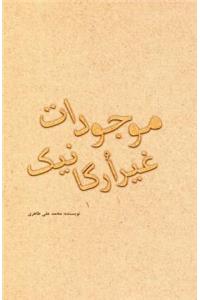 موجودات
غیرأرگانیک
۱
نویسنده: محمد علی طاهری